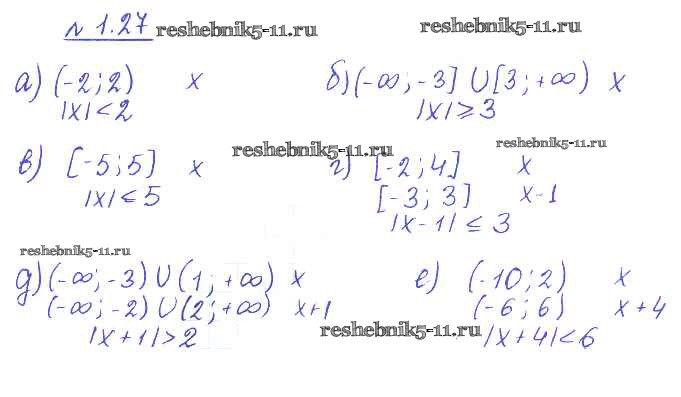 № 1.27 reshebnik5-11.ru reshebnik5-11.ru
а) (-2; 2) x б) (-∞; -3] U [3; +∞) x
|x| < 2 |x| ⩾ 3
reshebnik5-11.ru reshebnik5-11.ru
в) [-5; 5] x г) [-2; 4] x
|x| ≤ 5 [-3; 3] x-1
|x-1| ≤ 3
reshebnik5-11.ru
д) (-∞; -3) U (1; +∞) x е) (-10; 2) x
(-∞; -2) U (2; +∞) x+1 (-6; 6) x+4
|x+1| > 2 reshebnik5-11.ru |x+4| < 6